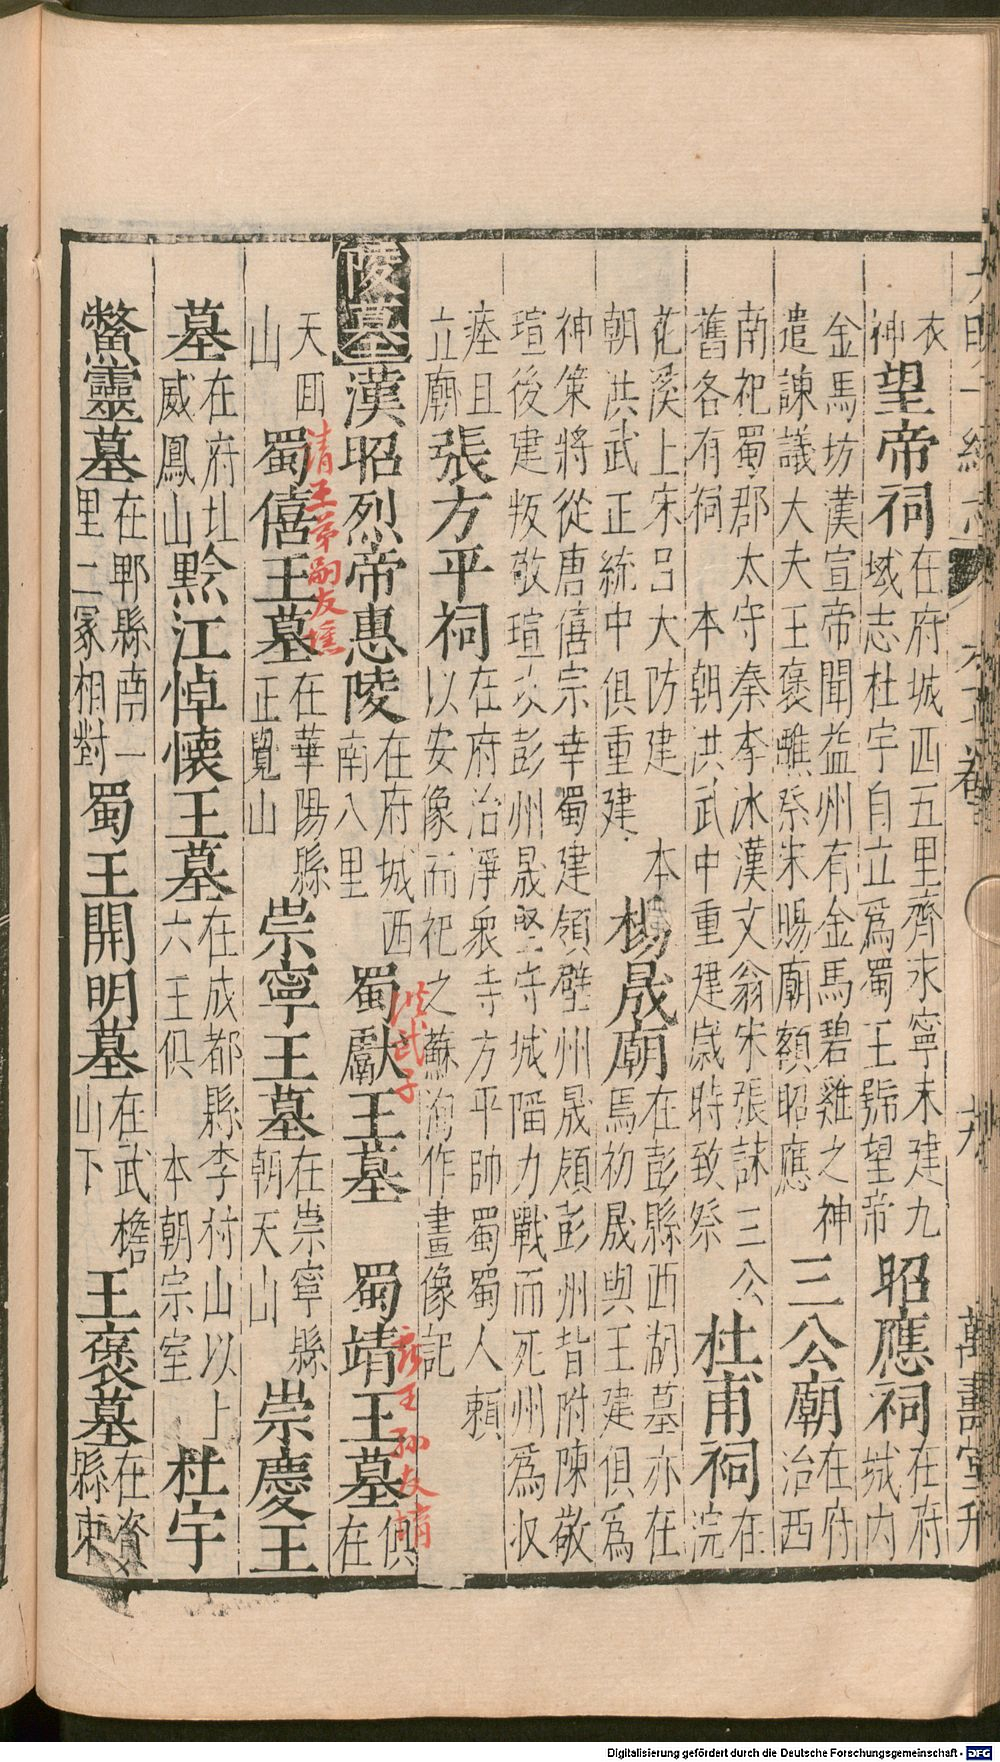 大明一統志 六十七卷 九 萬壽堂刊
衣神望帝祠在府城西五里齊永寧末建九域志杜宇自立爲蜀王號望帝昭應祠在府城內
金馬坊漢宣帝聞益州有金馬碧雞之神遣諫議大夫王褒醮祭宋賜廟額昭應三公廟在府治西
南祀蜀郡太守秦李冰漢文翁宋張詠三公舊各有祠 本朝洪武中重建歲時致祭杜甫祠在浣
花溪上宋呂大防建 本朝洪武正統中俱重建楊晟廟在彭縣西胡墓亦在焉初晟與王建俱爲
神策將從唐僖宗幸蜀建領壁州晟領彭州皆附陳敬瑄後建叛敬瑄攻彭州晟堅守城陷力戰而死州爲收
瘞且立廟張方平祠在府治淨衆寺方平帥蜀蜀人賴以安像而祀之蘇洵作畫像記
陵墓漢昭烈帝惠陵在府城西南八里蜀獻王墓 蜀靖王墓俱在
洪武子
獻王孫友堉
天回山蜀僖王墓在華陽縣正覺山崇寧王墓在崇寧縣朝天山崇慶王
靖王弟嗣友壎
墓在府北威鳳山黔江悼懷王墓在成都縣李村山以上六王俱 本朝宗室杜宇
鱉靈墓在郫縣南一里二冢相對蜀王開明墓在武檐山下王褒墓在資縣東
Digitalisierung gefördert durch die Deutsche Forschungsgemeinschaft - DFG